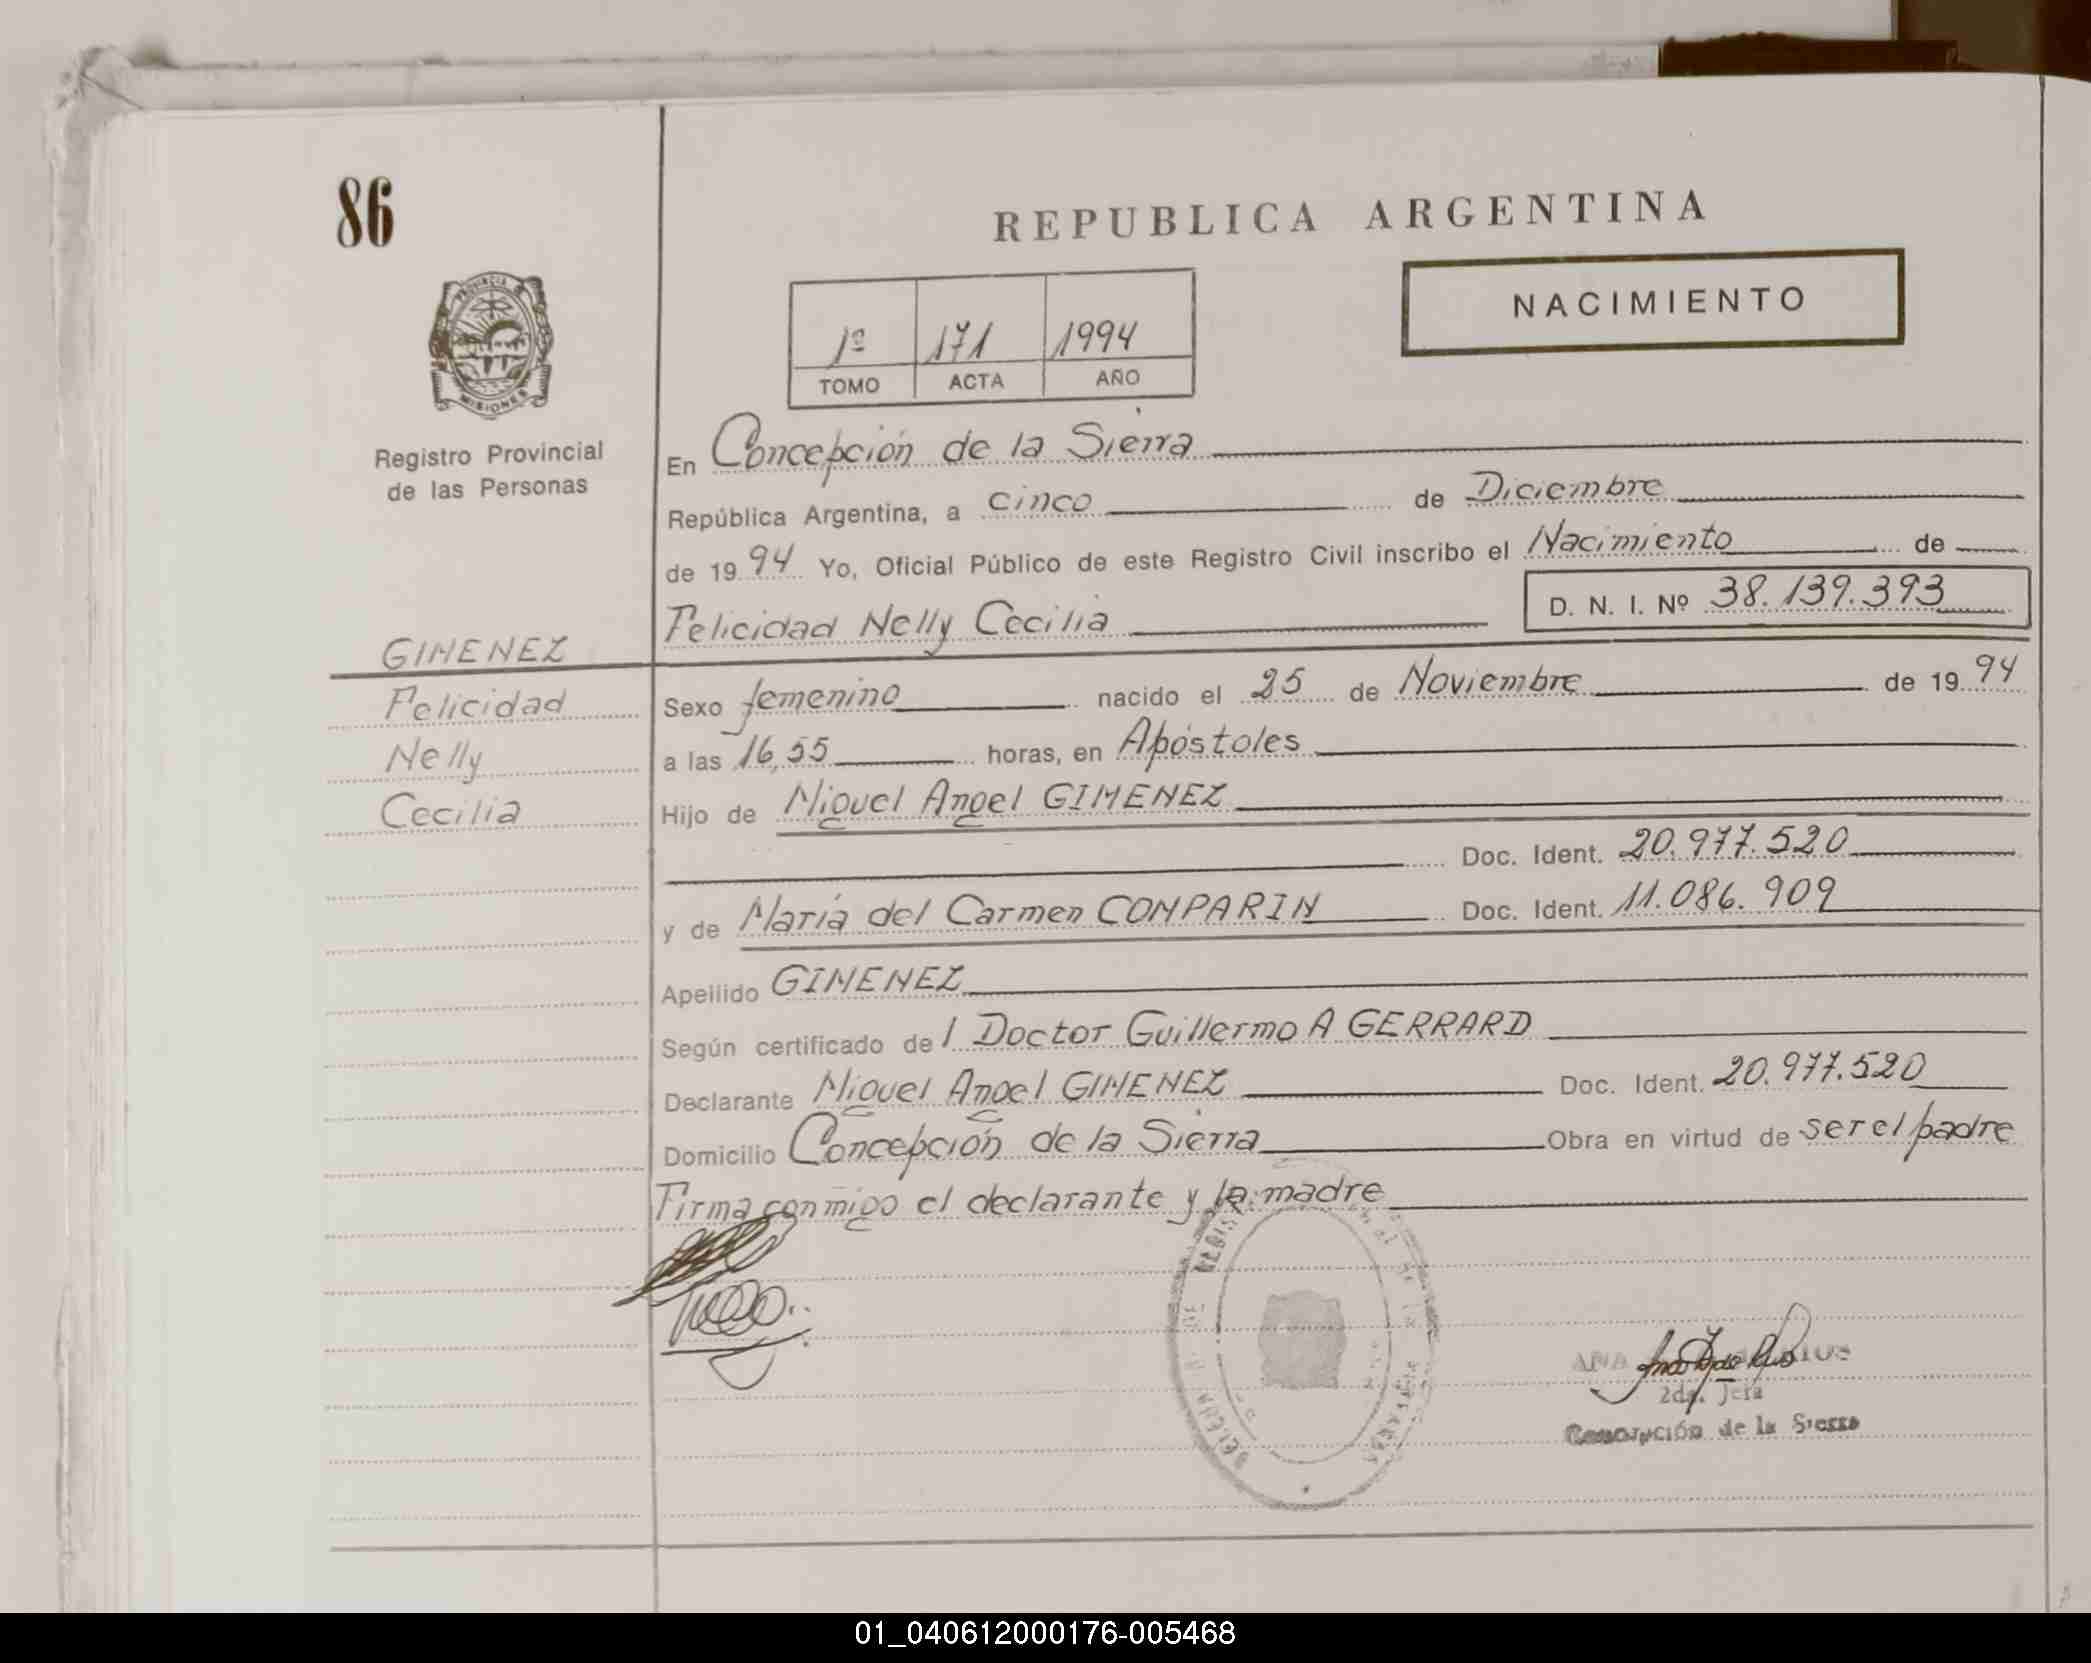 86
REPUBLICA ARGENTINA
NACIMIENTO
1º 171 1994
TOMO ACTA AÑO
PROVINCIA DE
MISIONES
Registro Provincial
de las Personas
En Concepción de la Sierra
República Argentina, a cinco de Diciembre
de 1994 Yo, Oficial Público de este Registro Civil inscribo el Nacimiento de
Felicidad Nelly Cecilia D. N. I. Nº 38.139.393
GIMENEZ
Felicidad
Nelly
Cecilia
Sexo femenino nacido el 25 de Noviembre de 1994
a las 16,55 horas, en Apóstoles
Hijo de Miguel Angel GIMENEZ
Doc. Ident. 20.977.520
y de María del Carmen COMPARIN Doc. Ident. 11.086.909
Apellido GIMENEZ
Según certificado del Doctor Guillermo A GERRARD
Declarante Miguel Angel GIMENEZ Doc. Ident. 20.977.520
Domicilio Concepción de la Sierra Obra en virtud de ser el padre
Firma conmigo el declarante y la madre
ANA
2da. Jefa
Concepción de la Sierra
01_040612000176-005468